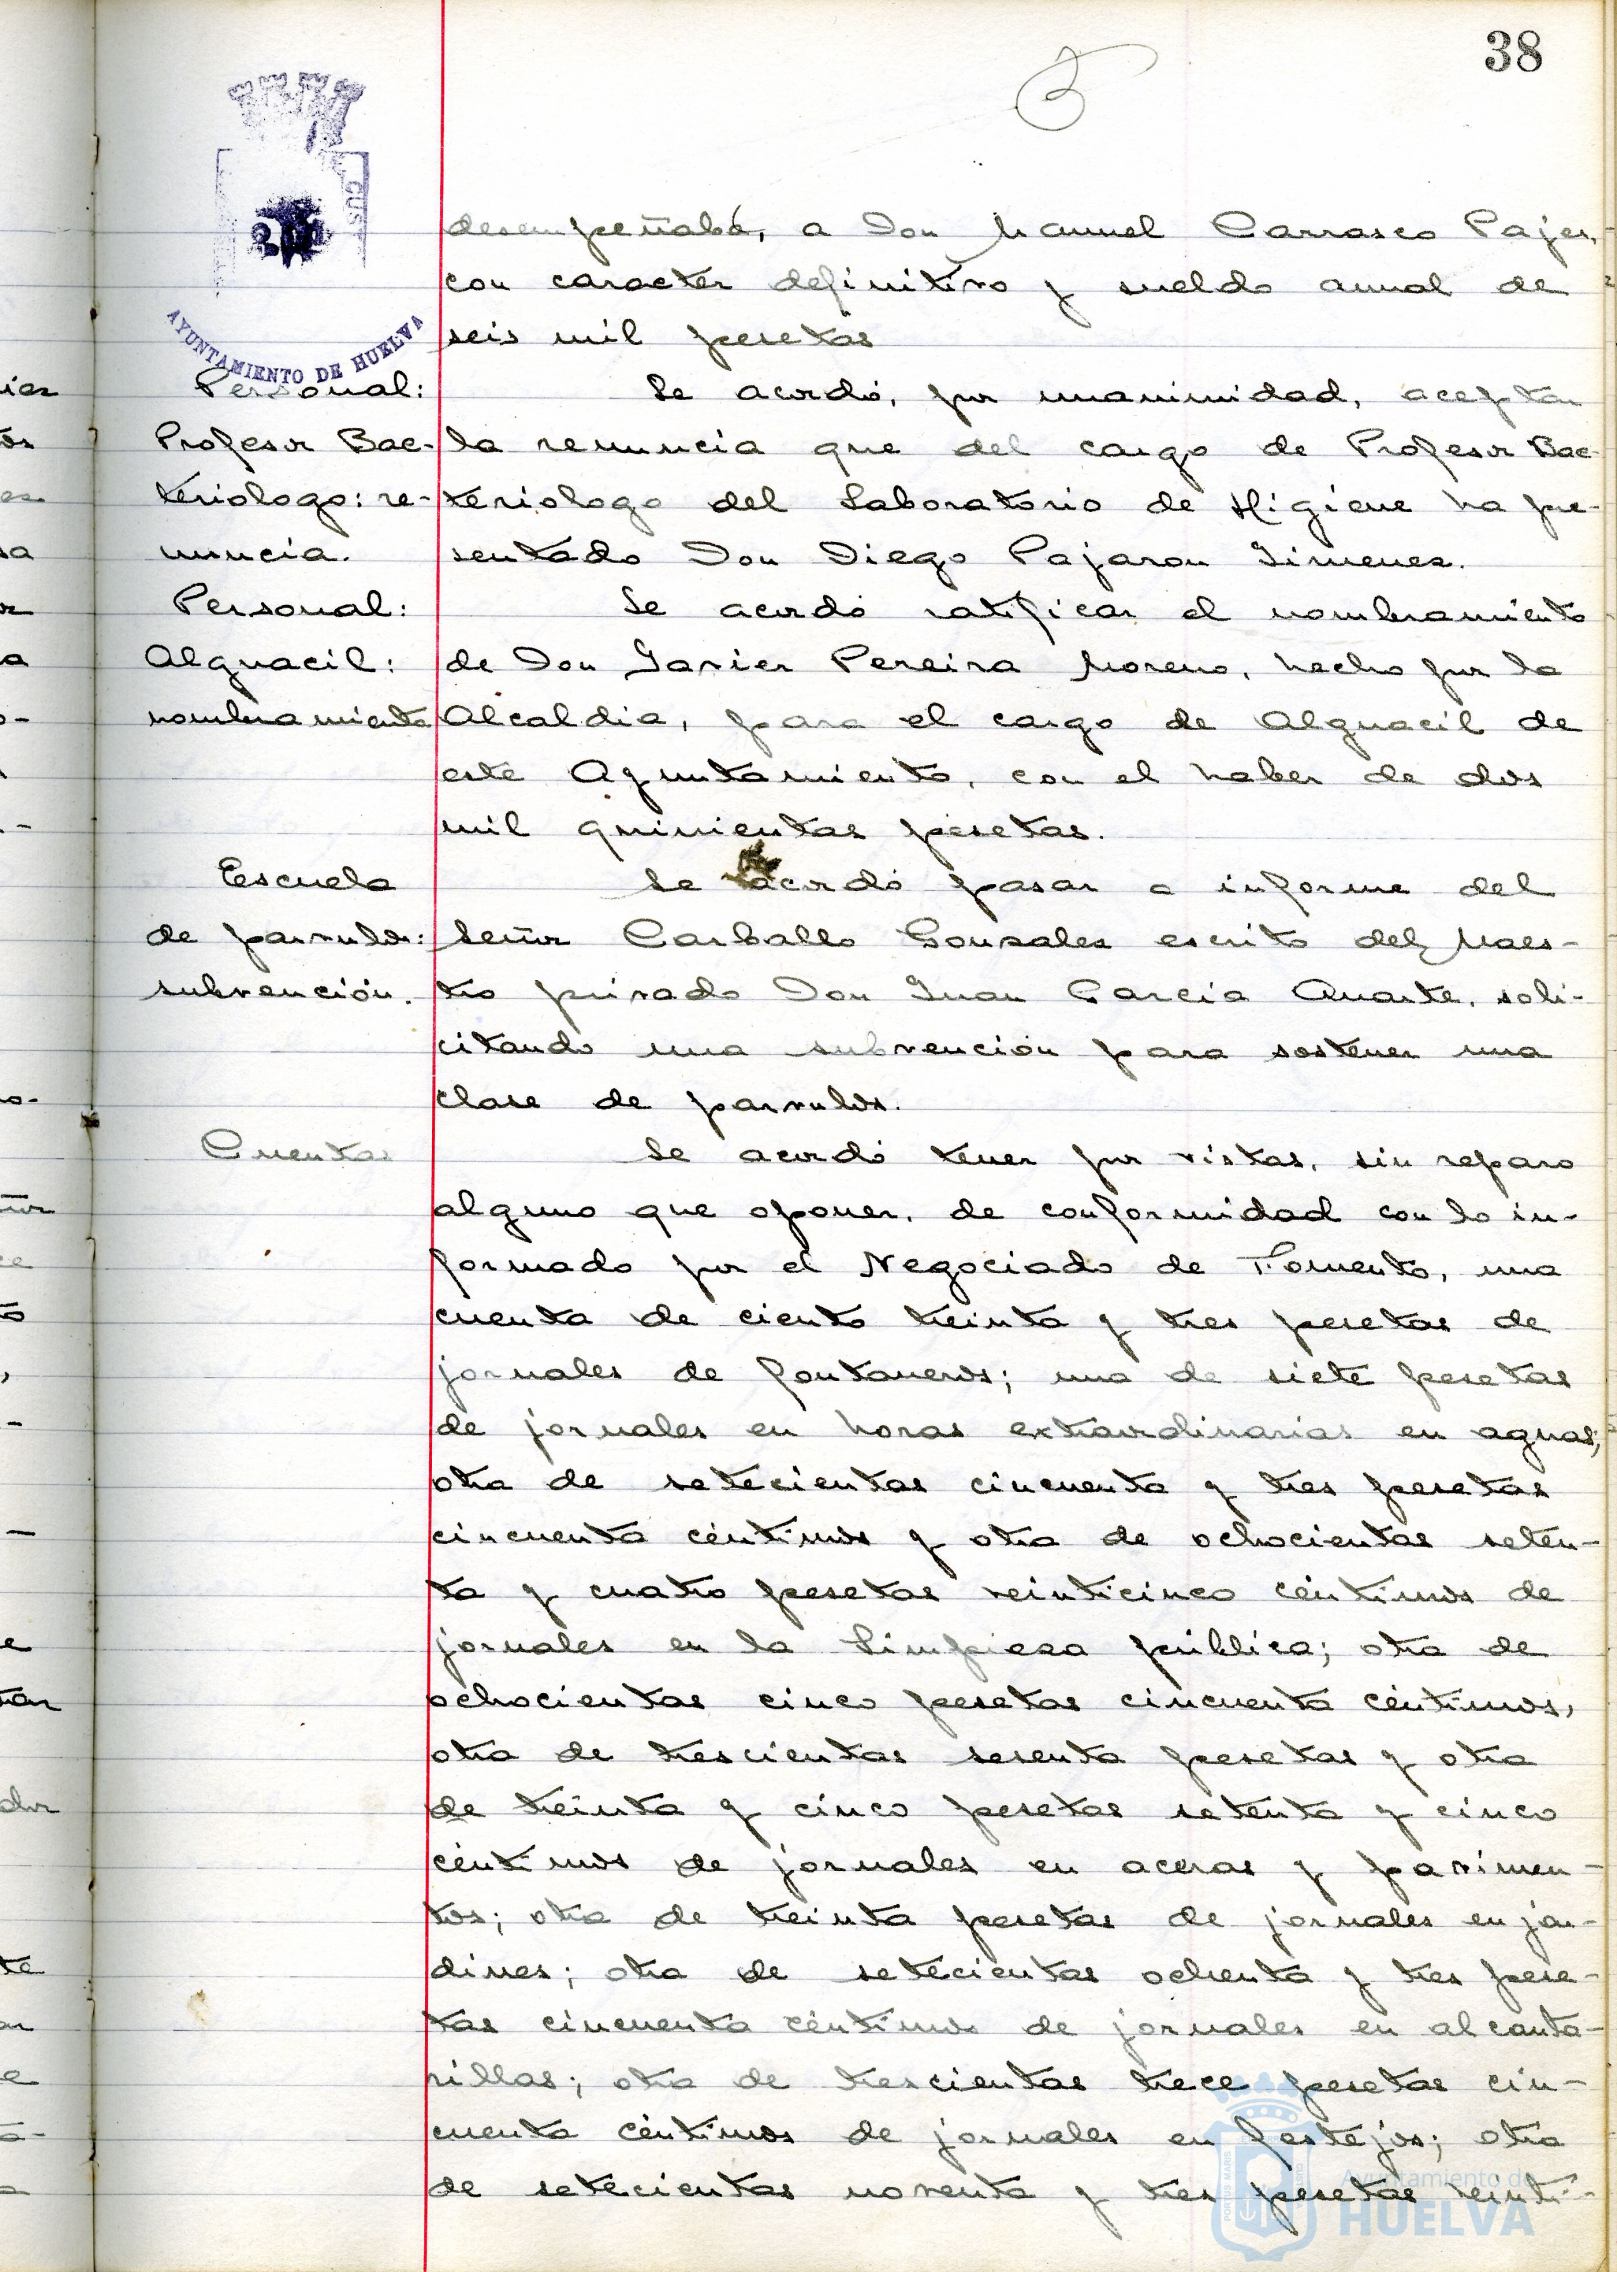 38
AYUNTAMIENTO DE HUELVA
desempeñaba, a Don Manuel Carrasco Pajes,
con caracter definitivo y sueldo anual de
seis mil pesetas
Personal:
Profesor Bac-
teriologo: re-
nuncia.
Se acordó, por unanimidad, aceptar
la renuncia que del cargo de Profesor Bac-
teriologo del Laboratorio de Higiene ha pre-
sentado Don Diego Pajaron Jimenez.
Personal:
Alguacil:
nombramiento
Se acordó ratificar el nombramiento
de Don Javier Pereira Moreno, hecho por la
Alcaldia, para el cargo de Alguacil de
este Ayuntamiento, con el haber de dos
mil quinientas pesetas.
Escuela
de parvulos:
subvención.
Se acordó pasar a informe del
Señor Carballo Gonzalez escrito del Maes-
tro privado Don Juan Garcia Anarte, soli-
citando una subvención para sostener una
clase de parvulos.
Cuentas
Se acordó tener por vistas, sin reparo
alguno que oponer, de conformidad con lo in-
formado por el Negociado de Fomento, una
cuenta de ciento treinta y tres pesetas de
jornales de fontaneros; una de siete pesetas
de jornales en horas extraordinarias en aguas;
otra de setecientas cincuenta y tres pesetas
cincuenta céntimos y otra de ochocientas seten-
ta y cuatro pesetas veinticinco céntimos de
jornales en la Limpieza pública; otra de
ochocientas cinco pesetas cincuenta céntimos,
otra de trescientas sesenta pesetas y otra
de treinta y cinco pesetas setenta y cinco
céntimos de jornales en aceras y pavimen-
tos; otra de treinta pesetas de jornales en jar-
dines; otra de setecientas ochenta y tres pese-
tas cincuenta céntimos de jornales en alcanta-
rillas; otra de trescientas trece pesetas cin-
cuenta céntimos de jornales en festejos; otra
de setecientas noventa y tres pesetas veinti-
Ayuntamiento de
HUELVA